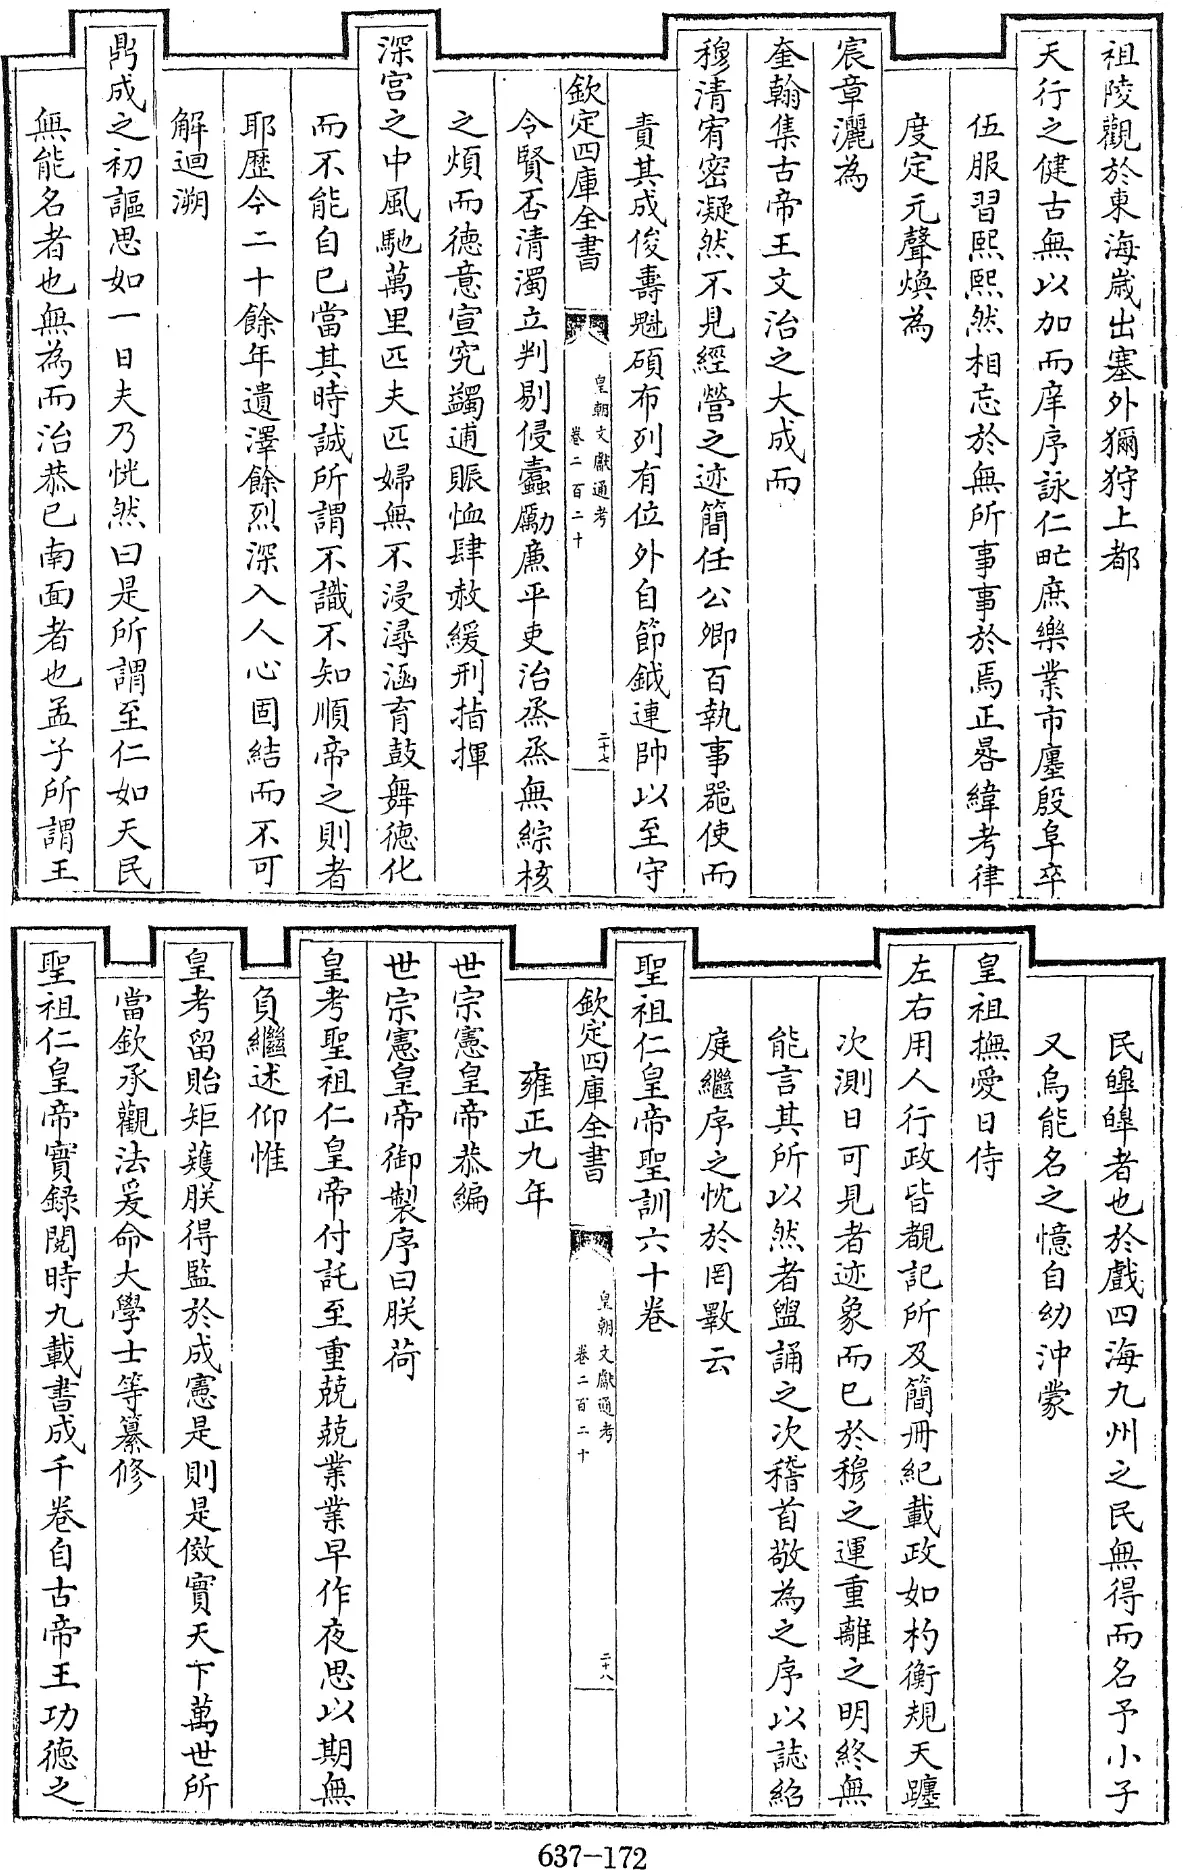 祖陵觀於東海歲出塞外獮狩上都
天行之健古無以加而庠序詠仁甿庶樂業市廛殷阜卒
伍服習熙熙然相忘於無所事事於焉正晷緯考律
度定元聲煥為
宸章灑為
奎翰集古帝王文治之大成而
穆清宥密凝然不見經營之迹簡任公卿百執事器使而
責其成俊壽魁碩布列有位外自節鉞連帥以至守
欽定四庫全書
皇朝文獻通考
卷二百二十
二十七
令賢否清濁立判剔侵蠹勵廉平吏治烝烝無綜核
之煩而德意宣究蠲逋賑恤肆赦緩刑指揮
深宫之中風馳萬里匹夫匹婦無不浸潯涵育鼓舞德化
而不能自已當其時誠所謂不識不知順帝之則者
耶歷今二十餘年遺澤餘烈深入人心固結而不可
解迴溯
鼎成之初謳思如一日夫乃恍然曰是所謂至仁如天民
無能名者也無為而治恭已南面者也孟子所謂王
民皥皥者也於戲四海九州之民無得而名予小子
又烏能名之憶自幼沖蒙
皇祖撫愛日侍
左右用人行政皆覩記所及簡冊紀載政如杓衡規天躔
次測日可見者迹象而已於穆之運重離之明終無
能言其所以然者盥誦之次稽首敬為之序以誌紹
庭繼序之忱於罔斁云
聖祖仁皇帝聖訓六十卷
欽定四庫全書
皇朝文獻通考
卷二百二十
二十八
雍正九年
世宗憲皇帝恭編
世宗憲皇帝御製序曰朕荷
皇考聖祖仁皇帝付託至重兢兢業業早作夜思以期無
負繼述仰惟
皇考留貽矩矱朕得監於成憲是則是傚實天下萬世所
當欽承觀法爰命大學士等纂修
聖祖仁皇帝實録閱時九載書成千卷自古帝王功德之
637-172